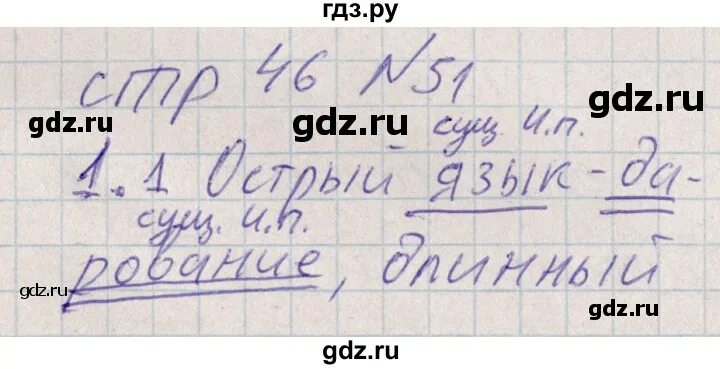 гдз.ру
стр 46 №51
gdz.ru gdz.ru gdz.ru
сущ. И.п.
1.1 Острый язык - да-
сущ. И.п.
gdz.ru gdz.ru
рование, длинный
gdz.ru gdz.ru
gdz.ru